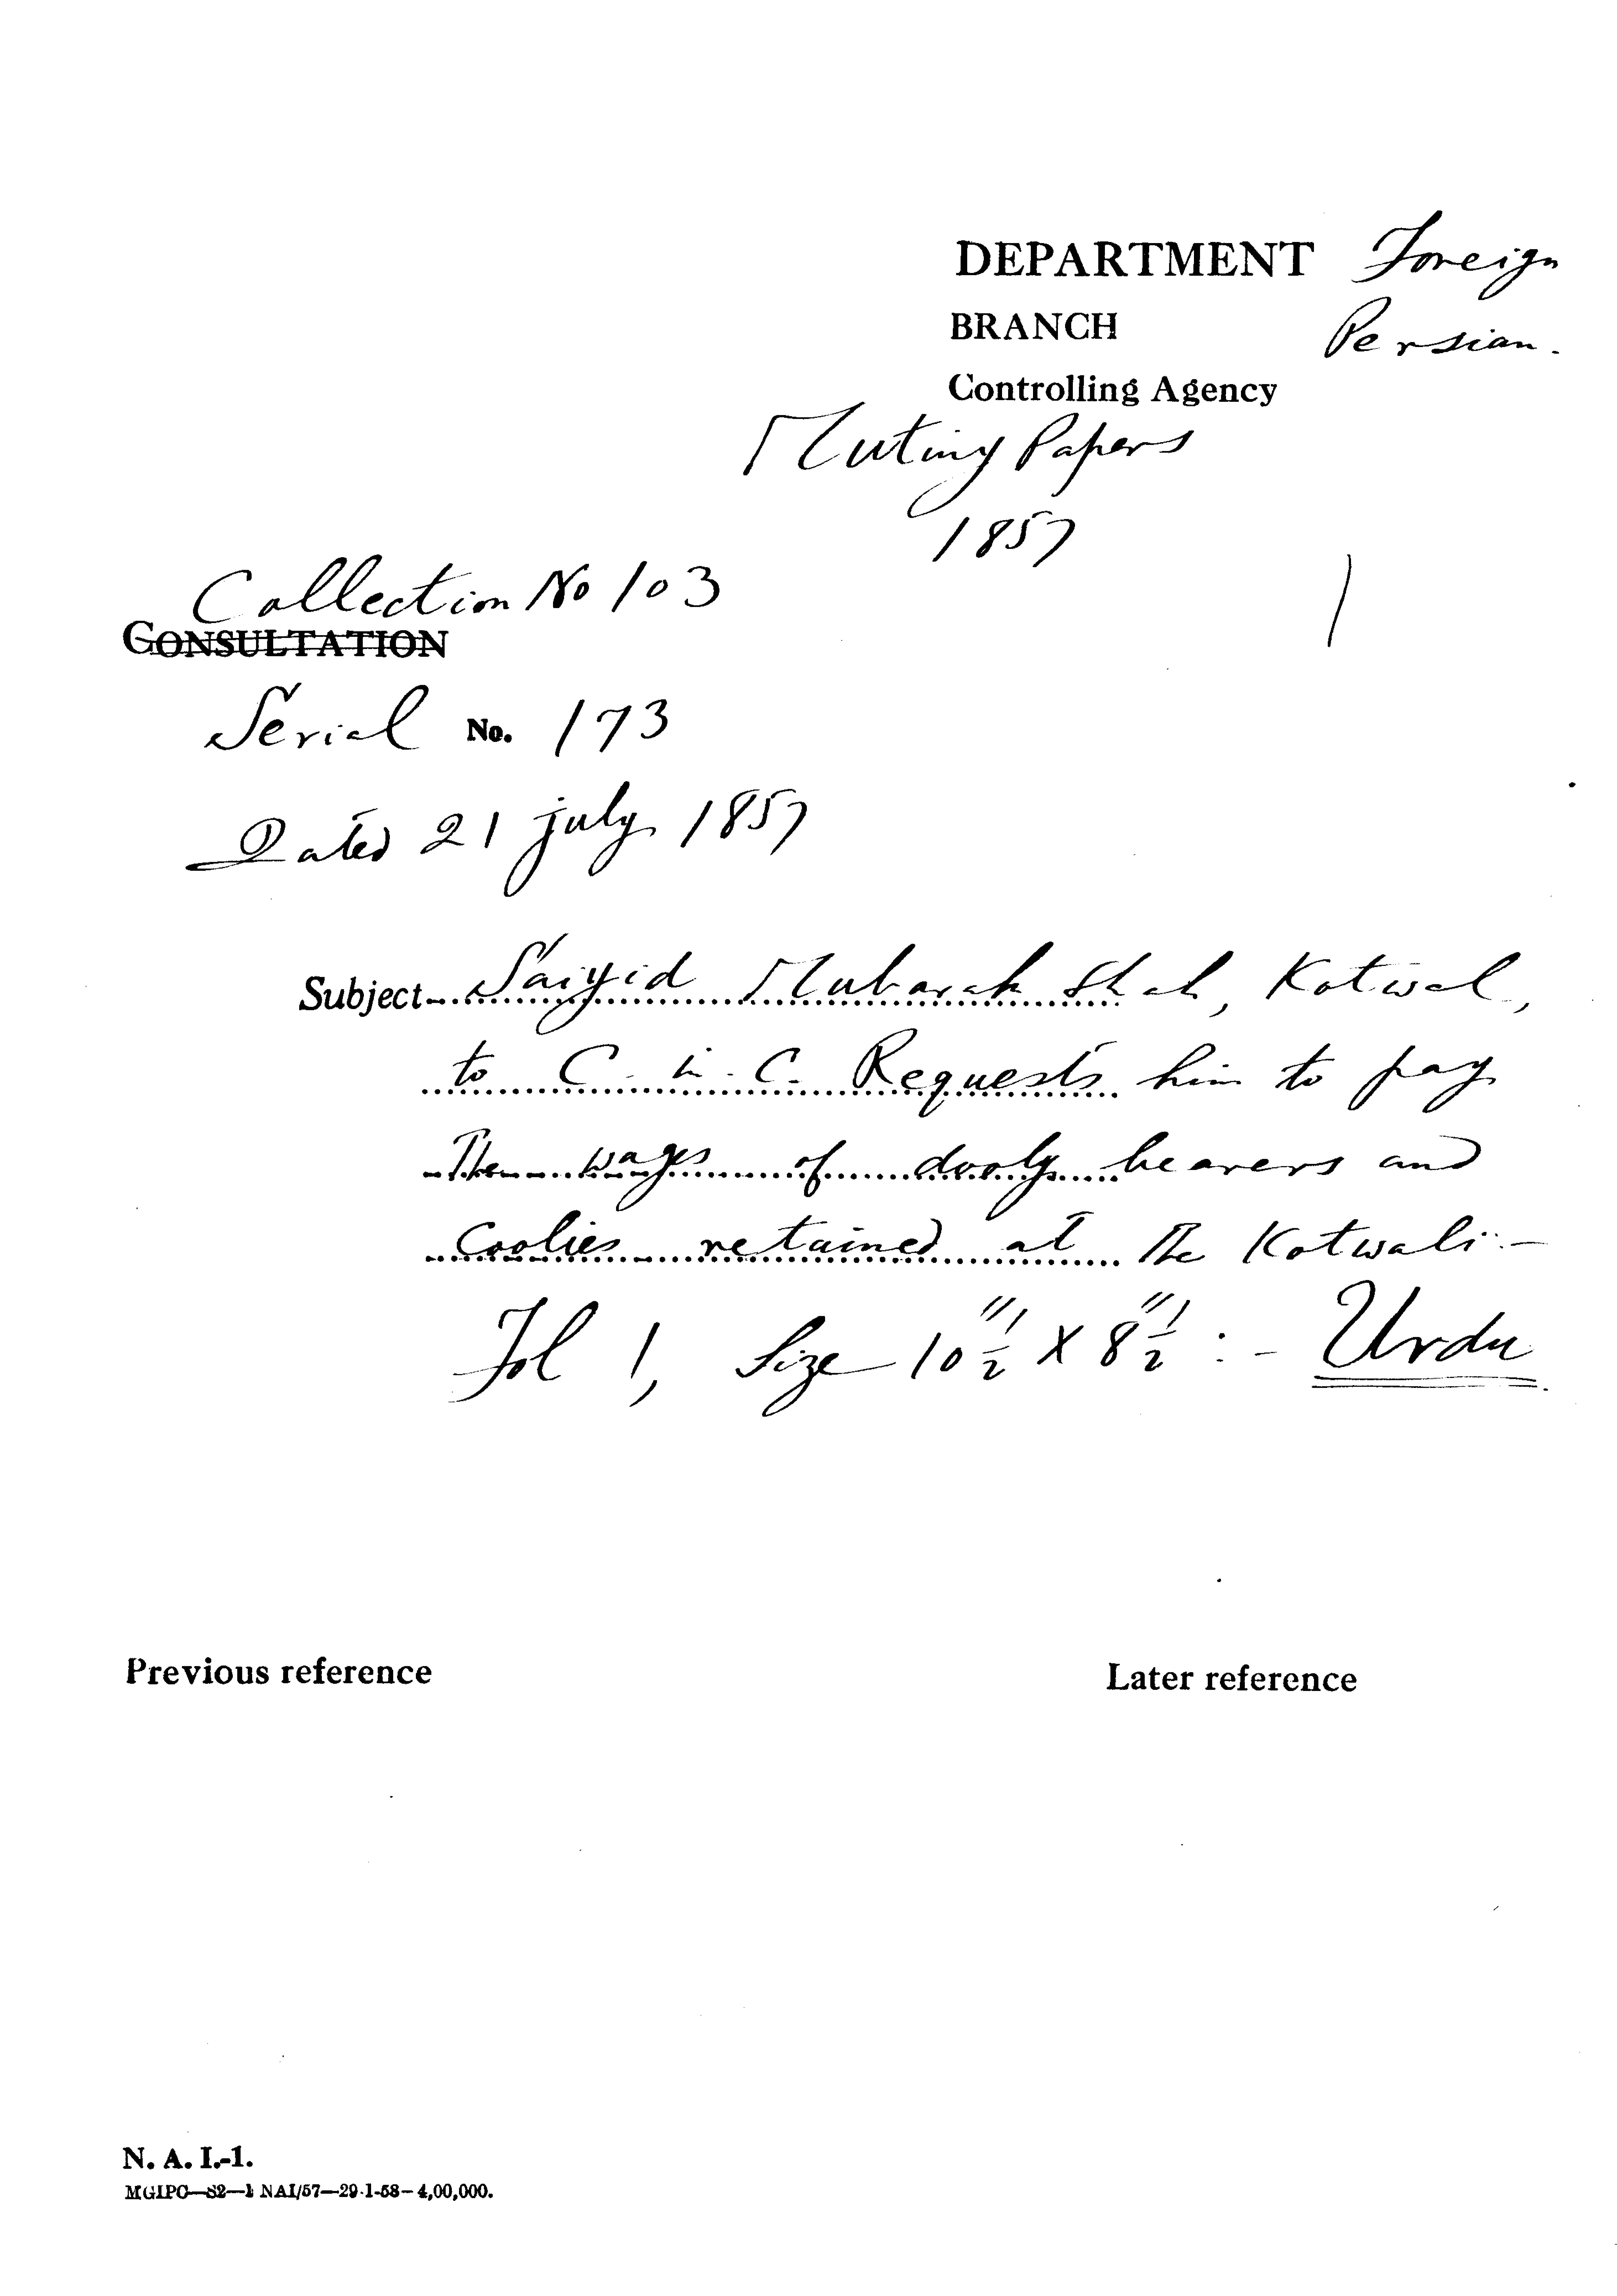 DEPARTMENT Foreign
BRANCH Persian.
Controlling Agency
Mutiny Papers
1857
1
Collection No 103
CONSULTATION
Serial No. 173
Dated 21 july 1857
Subject Saiyid Mubarak Shah, Kotwal,
to C. in. C. Requests him to pay
The wages of dooly bearers and
Coolies retained at The Kotwali:-
Fol 1, Size 10½" X 8½" :- Urdu
Previous reference
Later reference
N. A. I.-1.
MGIPC—S2—1 NAI/57—29-1-58—4,00,000.